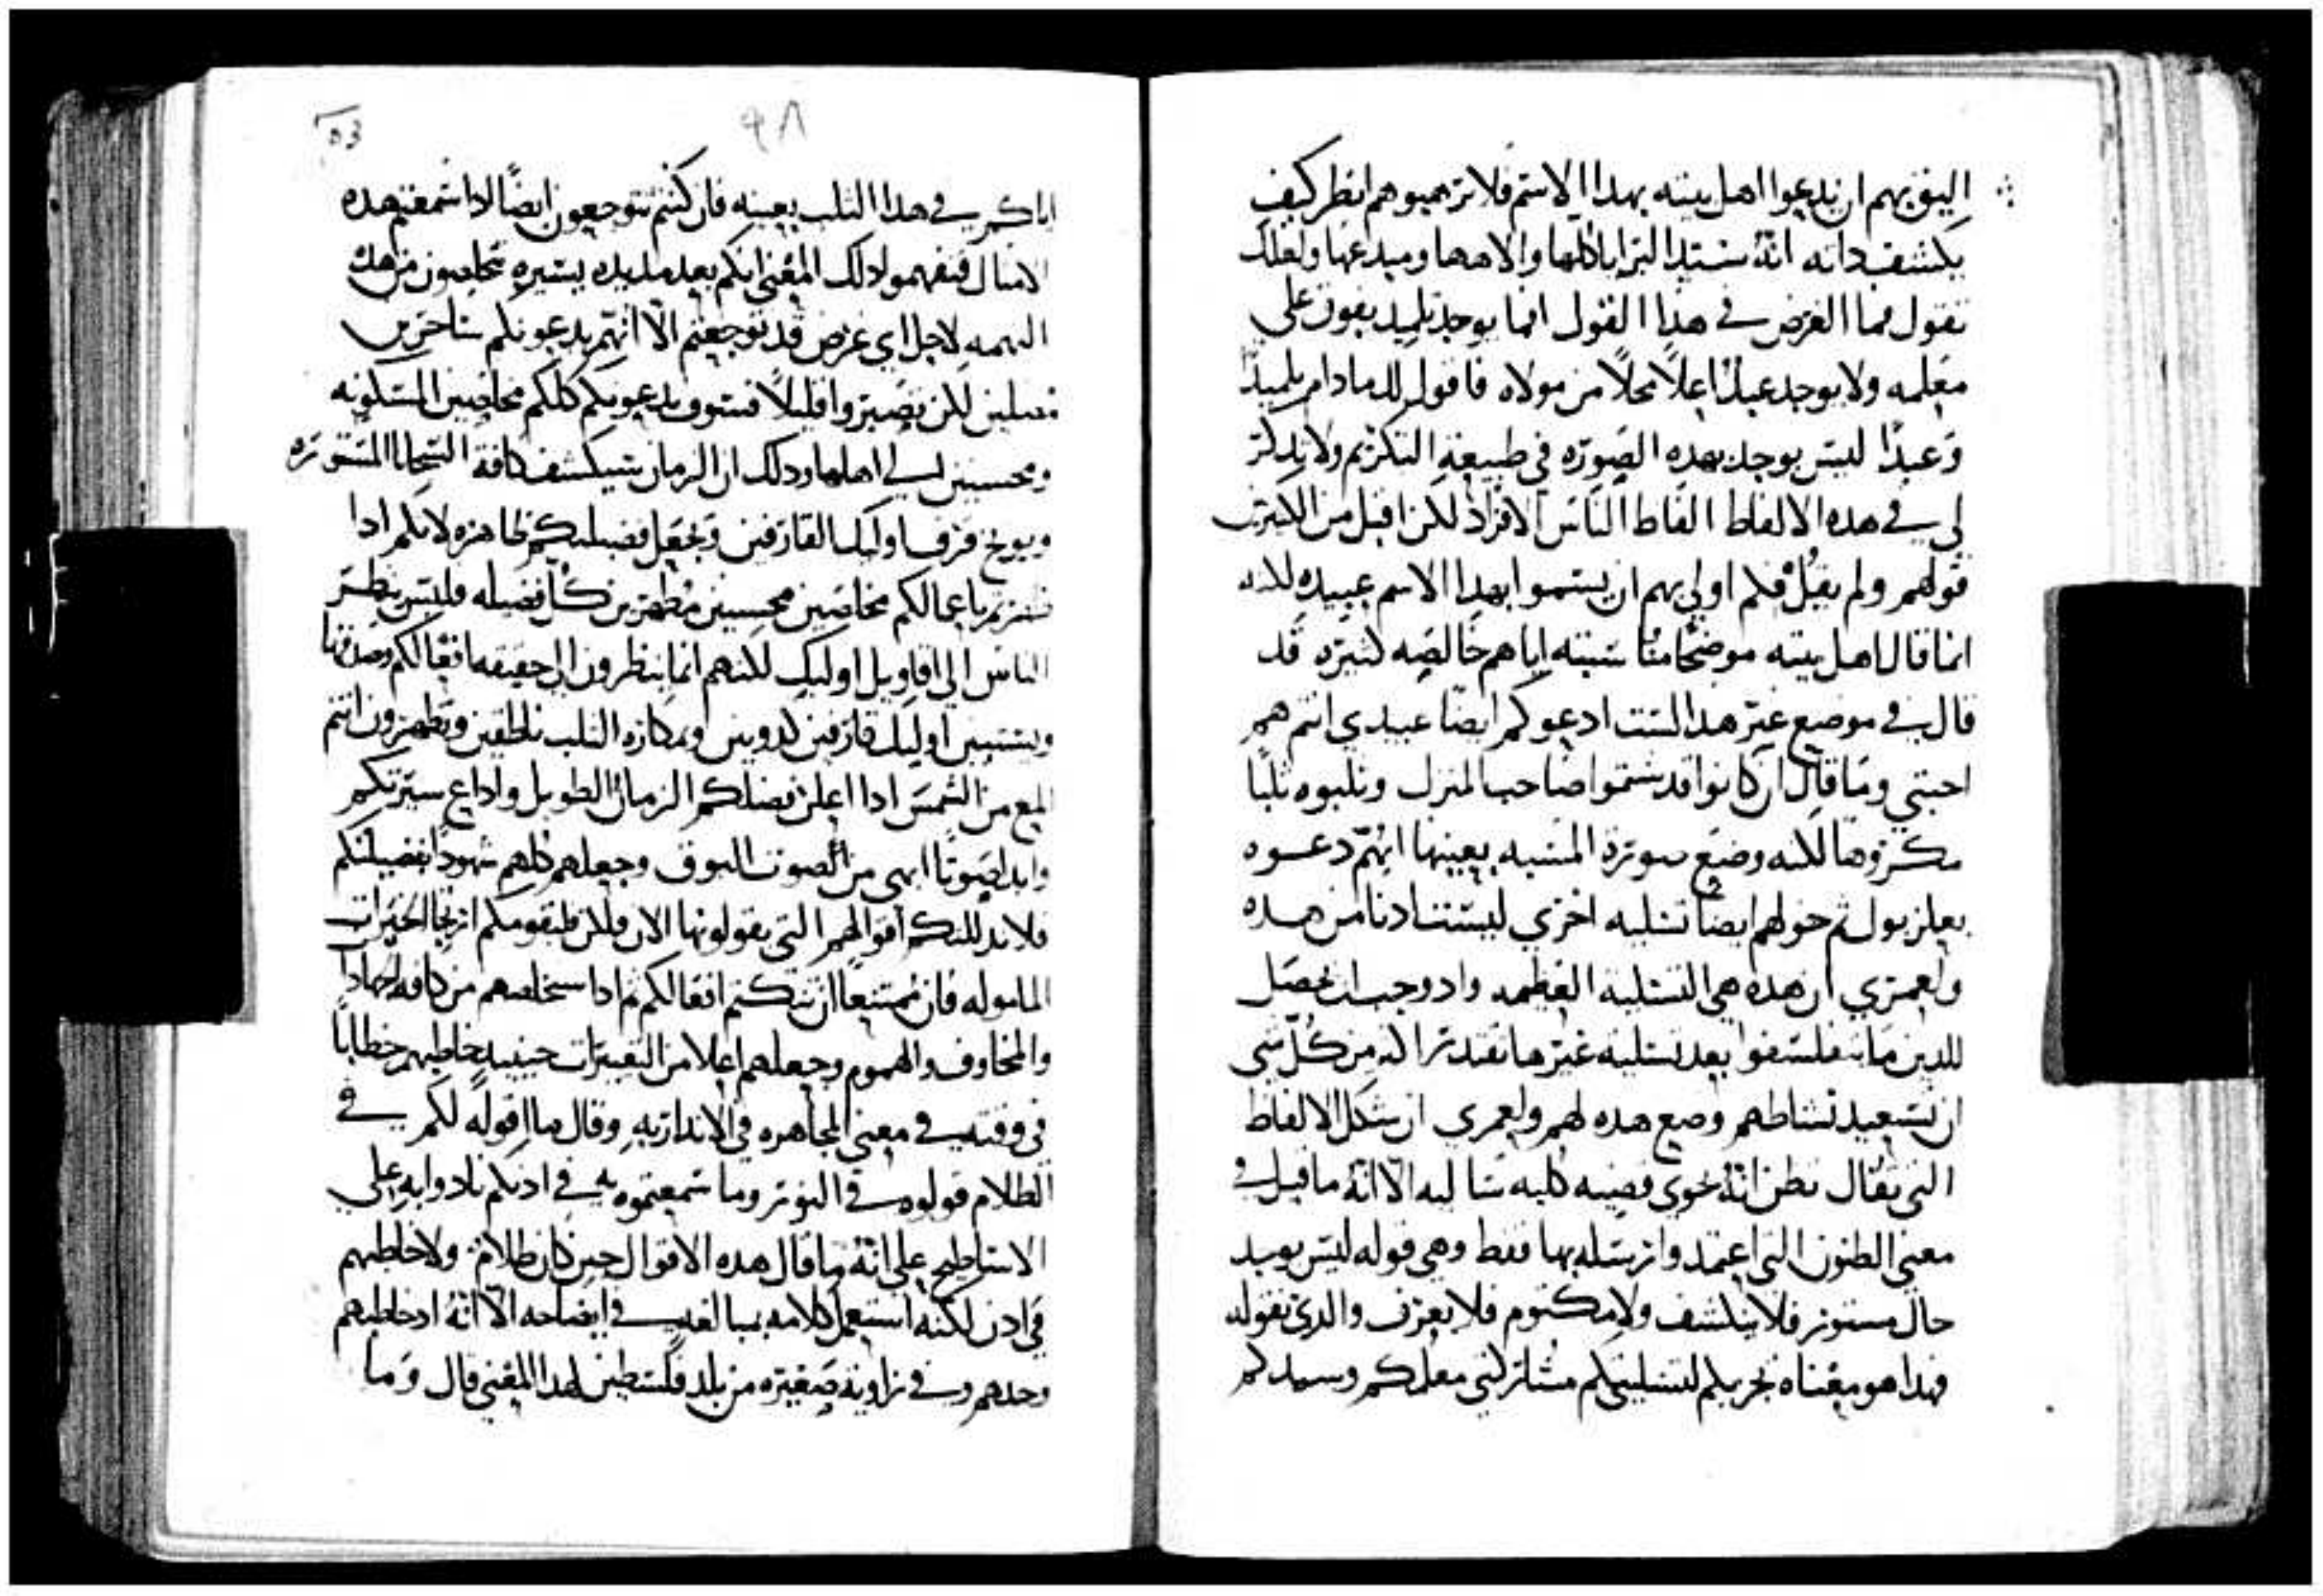 اليق بهم ان يدعوا اهل بيته بهدا الاسم فلا ترهبوهم انظر كيف
يكشف داته انه سيد البرايا كلها والاهها ومبدعها ولعلك
تقول فما الغرض في هذا القول افما يوجد تلميد يفوق على
معلمه ولا يوجد عبدًا اعلا محلاً من مولاه فاقول لك مادام تلميدًا
وعبدًا ليس يوجد بهده الصوره في طبيعة التكريم ولا تدكر
لي في هده الالفاط الفاط الناس الافراد لكن اقبل من الكثيرين
قولهم ولم يقل فكم اولي بهم ان يسموا بهدا الاسم عبيده لكنه
انما قال اهل بيته موضحًا منا سبته اياهم خالصه كثيره قد
قال في موضع غير هدا لست ادعوكم ايضا عبيدي انتم هم
احبتي وما قال ان كانوا قد شتموا صاحب المنزل وثلبوه ثلبًا
مكروها لكنه وضع صورة المسبه بعينها انهم دعوه
بعلزبول ثم خولهم ايضًا تسليه اخري ليست ادنا من هده
ولعمري ان هده هي التسلية العظمه واد وجب ان تحصل
للدين ما تفلسفوا بعد تسليه غيرها تقتدر اكثر من كل شي
ان تستعيد نشاطهم وضع هده لهم ولعمري ان شكل الالفاط
التي تقال تطن انه حوي قضيه كليه شا لبه الا انه ما قيل في
معني الطنون التي اعتمد وان يتله بها فقط وهي قوله ليس يوجد
حال مستور فلا ينكشف ولا مكتوم فلا يعرف والدي نقوله
فهدا هو معناه تجزيكم لتسليتكم مشاركتي معلمكم وسيدكم
٩٨
53
اياكم في هدا الثلب بعينه فان كنتم تتوجعون ايضًا ادا سمعتم هده
الامثال فتفهموا دلك المعني انكم بعد مديده يسيره تخلصون من هده
التهمه لاجل اي غرض قد توجعتم الا انهم يدعونكم ساحرين
مضلين لكن تصبروا قليلاً فسوف يدعونكم كلكم مخلصين المسكونه
ومحسنين الي اهلها ودلك ان الزمان سيكشف كافة السجايا المستوره
ويوبخ قرف اوليك القارفين ويجعل فضيلتكم ظاهره لانكم ادا
ظهرتم باعمالكم مخلصين محسنين مظهرين كل فضيله فليس ينظر
الناس الي اقاويل اوليك لكنهم انما ينظرون الى حقيقه افعالكم وصدقها
ويستبين اوليك قارفين كدوبين وبمكاره الثلب ناطقين وتظهرون انتم
المع من الشمس ادا اعلن فضلكم الزمان الطويل واداع سيرتكم
وابدا صوتًا ابهى من الصوت البوق وجعلهم كلهم شهودًا بفضيلتكم
فلا تدللكم اقوالهم التي يقولونها الان فلكن طيقومكم ارتجا الخيرات
الماموله فان ممتنعًا ان تكتم افعالكم ثم ادا سخلصهم من كافه الجهاد
والمخاوف والهموم وجعلهم اعلا من التعييرات حينيد خاطبهم خطابًا
في وقته في معني المجاهره في الاندار به وقال ما اقوله لكم في
الظلام قولوه في النور وما سمعتموه في ادنكم نادوا به علي
الاساطيح على انه ما قال هده الاقوال حين كان ظلام ولا خاطبهم
في ادن لكنه استعمل كلامه بمبالغه في ايضاحه الا انه اد خاطبهم
وحدهم وفي زاوية صغيره من بلد فلسطين لهدا المعني قال وما